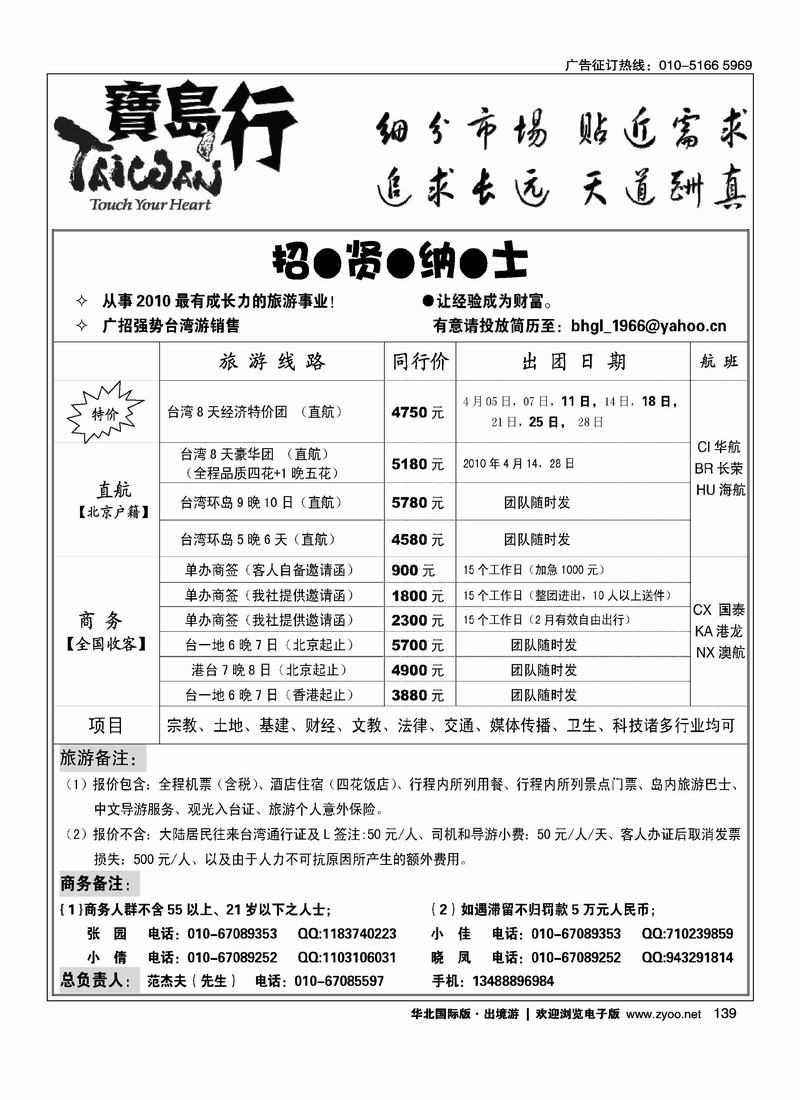 广告征订热线：010-5166 5969
寶島行
TAIWAN
Touch Your Heart
细分市场 贴近需求
追求长远 天道酬真
招●贤●纳●士
✧ 从事2010最有成长力的旅游事业！ ●让经验成为财富。
✧ 广招强势台湾游销售 有意请投放简历至：bhgl_1966@yahoo.cn
旅游线路 同行价 出团日期 航班
特价 台湾8天经济特价团 （直航） 4750元 4月05日，07日，11日，14日，18日，
21日，25日， 28日
直航
【北京户籍】
台湾8天豪华团 （直航）
（全程品质四花+1晚五花） 5180元 2010年4月14，28日
台湾环岛9晚10日（直航） 5780元 团队随时发
台湾环岛5晚6天（直航） 4580元 团队随时发
CI华航
BR长荣
HU海航
商务
【全国收客】
单办商签（客人自备邀请函） 900元 15个工作日（加急1000元）
单办商签（我社提供邀请函） 1800元 15个工作日（整团进出，10人以上送件）
单办商签（我社提供邀请函） 2300元 15个工作日（2月有效自由出行）
台一地6晚7日（北京起止） 5700元 团队随时发
港台7晚8日（北京起止） 4900元 团队随时发
台一地6晚7日（香港起止） 3880元 团队随时发
CX 国泰
KA港龙
NX澳航
项目 宗教、土地、基建、财经、文教、法律、交通、媒体传播、卫生、科技诸多行业均可
旅游备注：
（1）报价包含：全程机票（含税）、酒店住宿（四花饭店）、行程内所列用餐、行程内所列景点门票、岛内旅游巴士、
中文导游服务、观光入台证、旅游个人意外保险。
（2）报价不含：大陆居民往来台湾通行证及L签注:50元/人、司机和导游小费：50元/人/天、客人办证后取消发票
损失：500元/人、以及由于人力不可抗原因所产生的额外费用。
商务备注：
{1}商务人群不含55以上、21岁以下之人士； （2）如遇滞留不归罚款5万元人民币；
张 园 电话：010-67089353 QQ:1183740223 小 佳 电话：010-67089353 QQ:710239859
小 倩 电话：010-67089252 QQ:1103106031 晓 凤 电话：010-67089252 QQ:943291814
总负责人： 范杰夫（先生） 电话：010-67085597 手机：13488896984
华北国际版·出境游 | 欢迎浏览电子版 www.zyoo.net 139